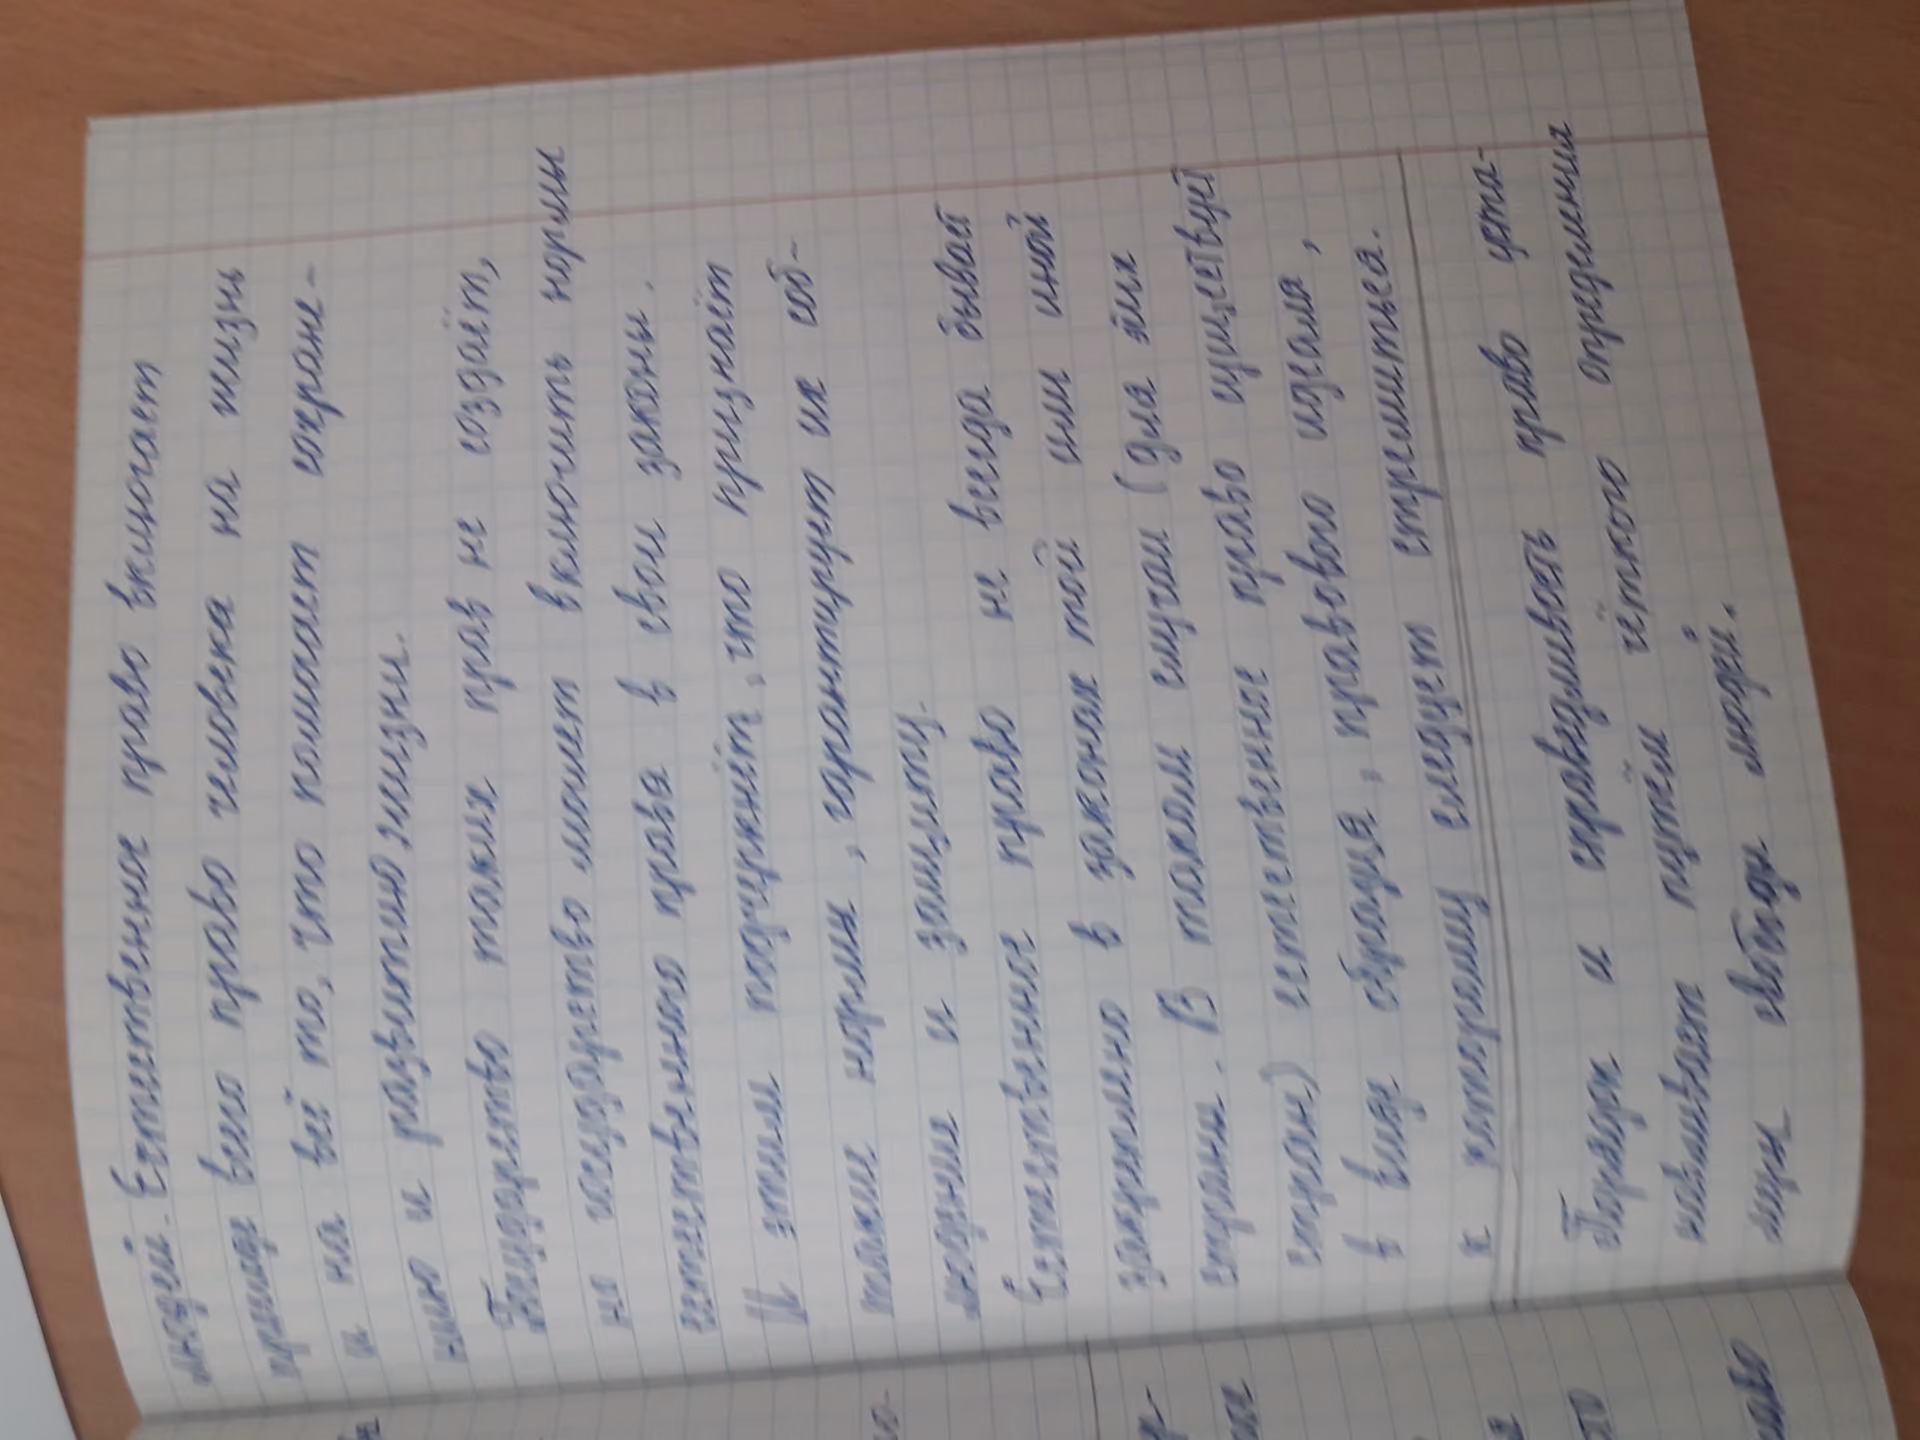 людей. Естественное право включает
прежде всего право человека на жизнь
и на всё то, что помогает сохране-
нию и развитию жизни.
Государство таких прав не создаёт,
но государство может включить нормы
естественного права в свои законы.
И этим подчеркнёт, что признаёт
такие нормы, гарантирует их соб-
людение и защиту.
Естественное право не всегда бывает
закреплено в законах той или иной
страны. В таком случаи (для этих
стран) естественное право существует
в виде образца, правового идеала,
к которому следует стремиться.
Порядок и справедливость право уста-
навливает путём чёткого определения
меры свободы людей.